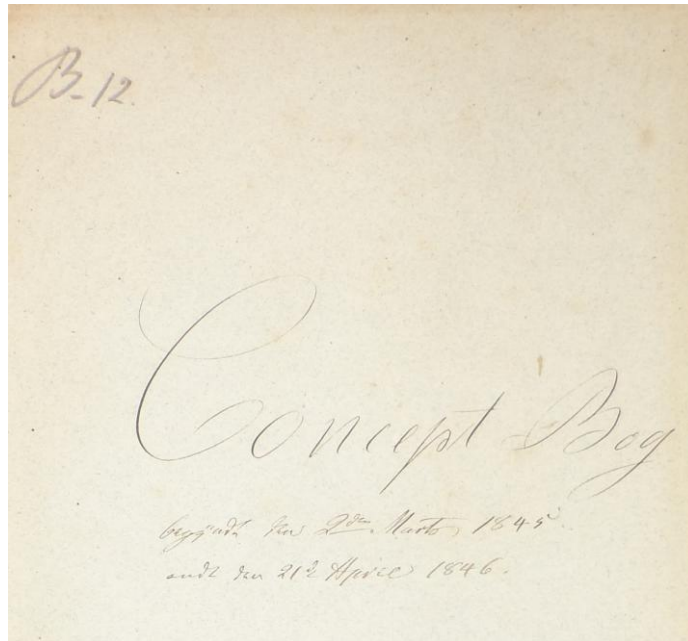 B-12.
Concept-Bog
begyndt den 2den Marts 1845
endt den 21d April 1846.